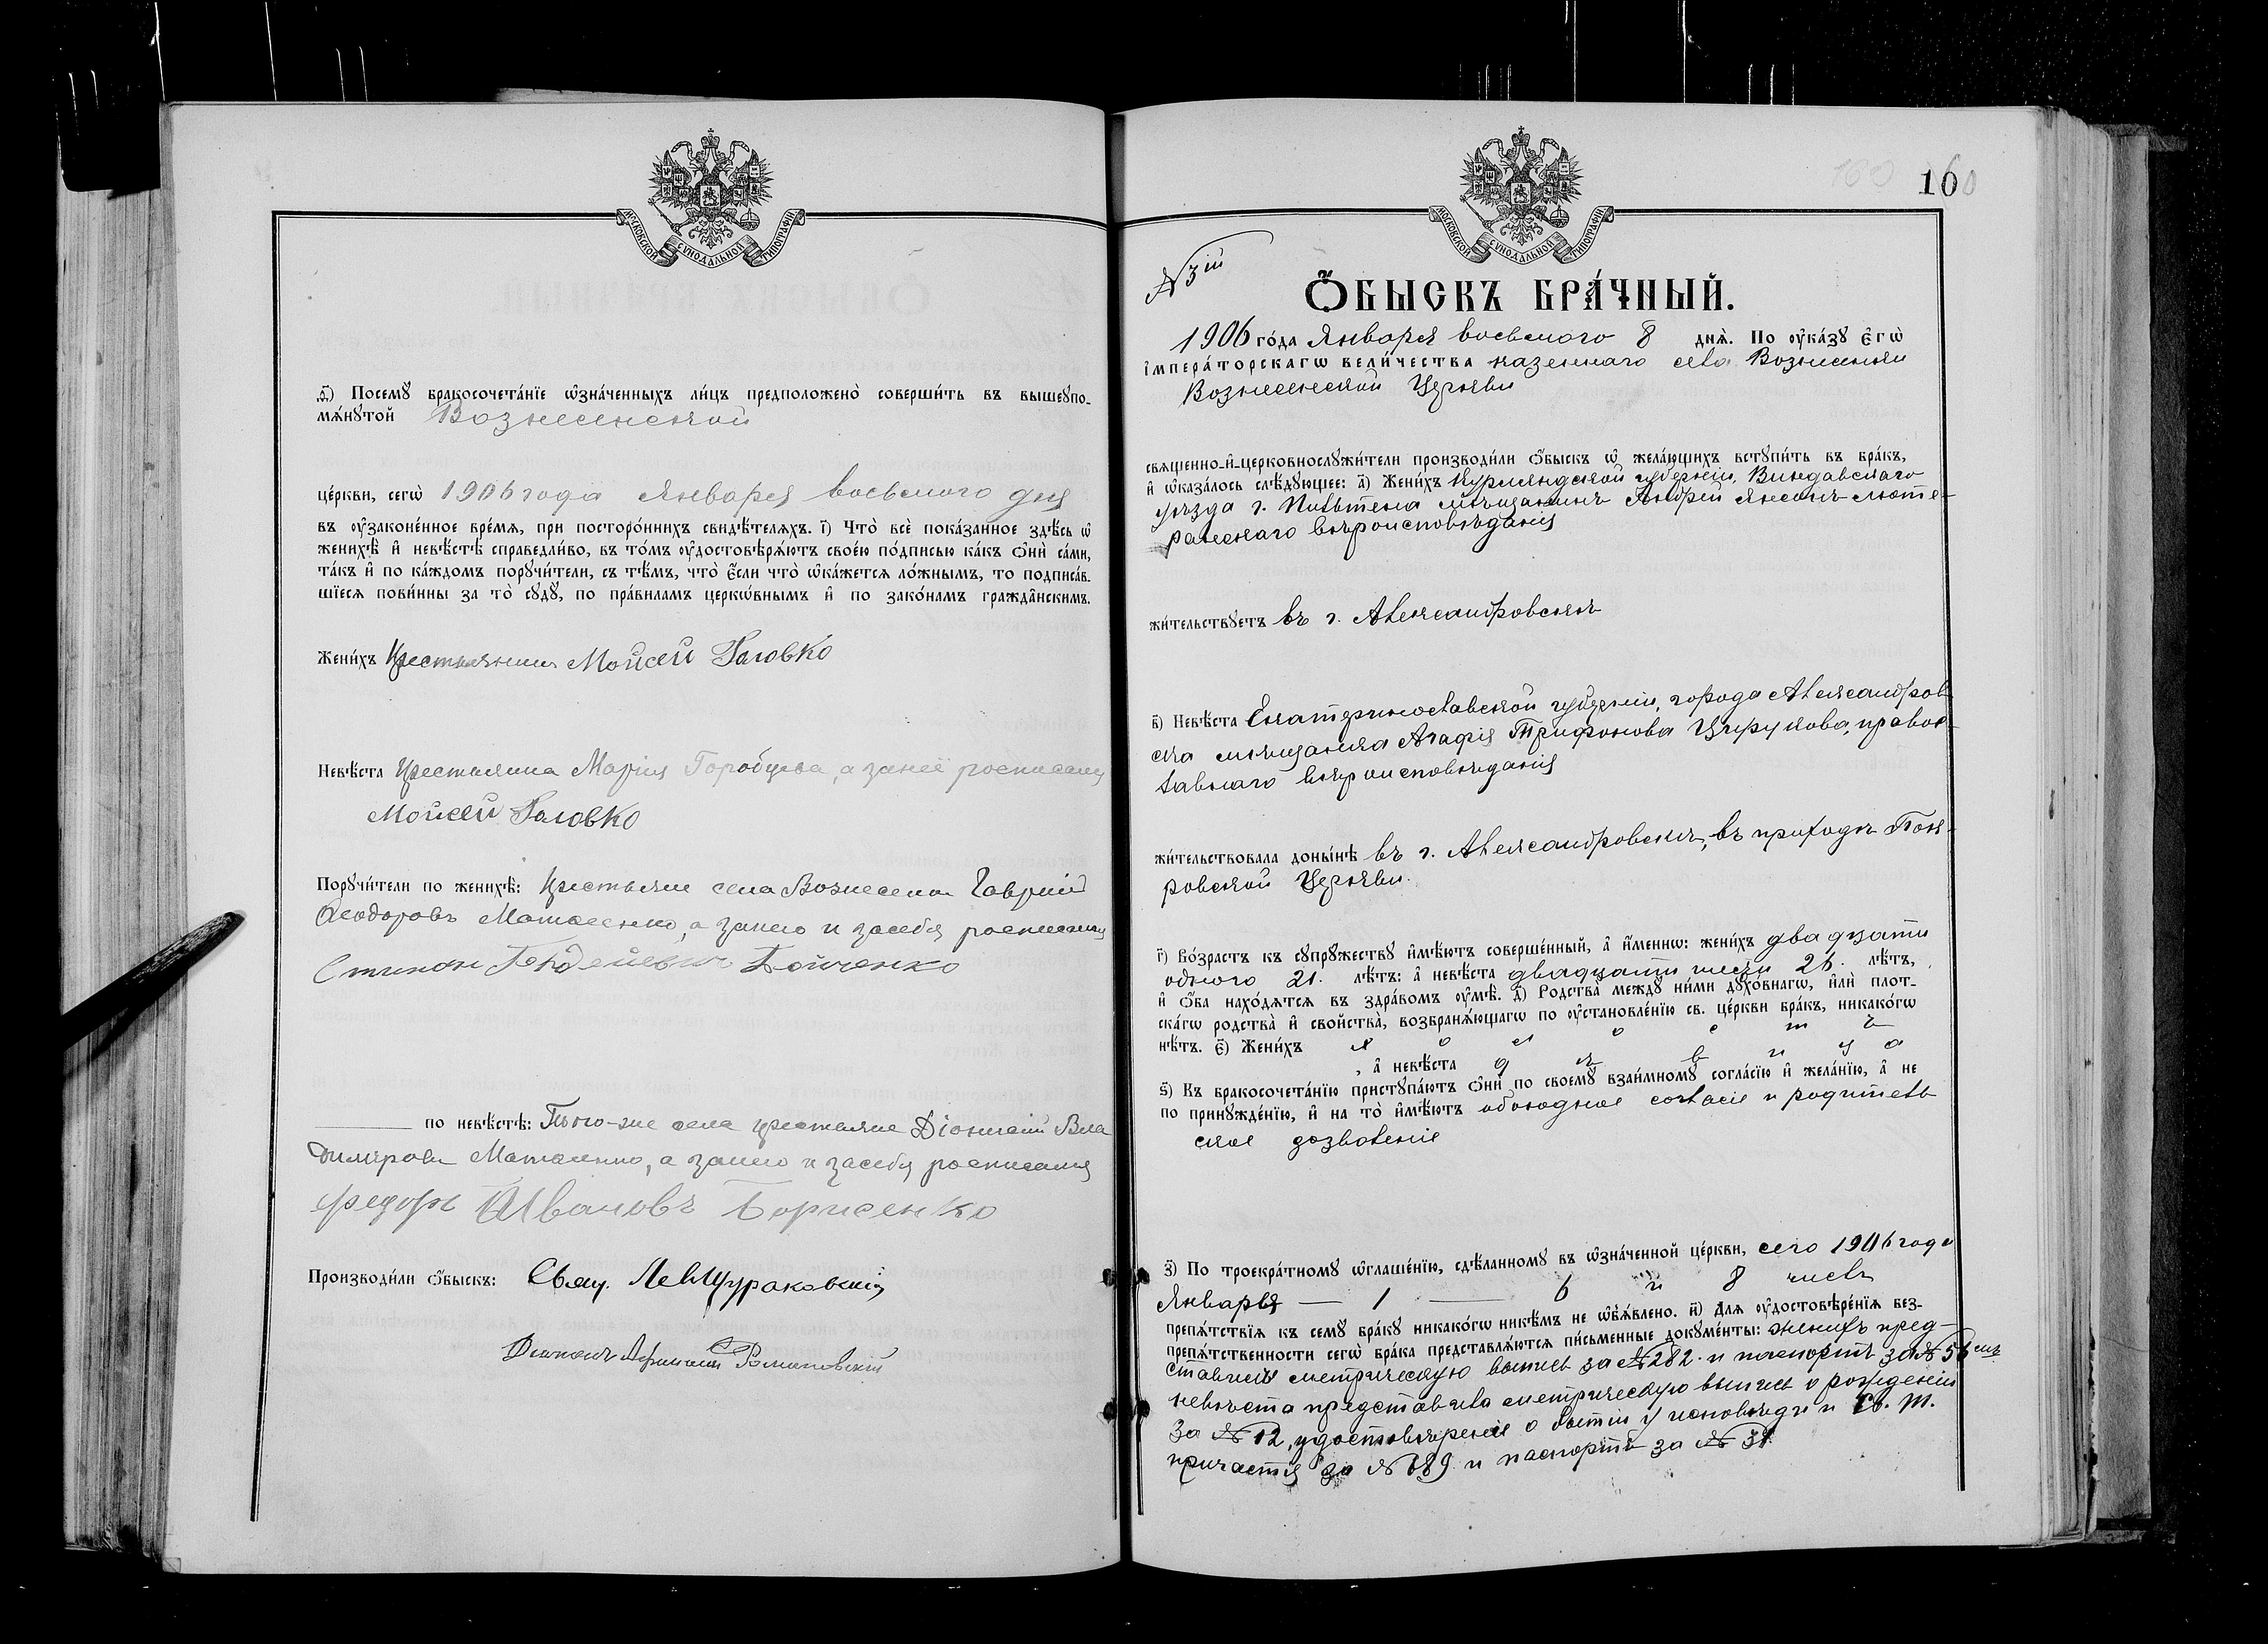 МОСКОВСКОЙ СУНОДАЛЬНОЙ ТИПОГРАФІИ
ѳ҃) Посемꙋ̀ бракосочета́нїе ѡ҆зна́ченныхъ ли́цъ предположено̀ соверши́ть въ вышеꙋпо-
мѧ́нꙋтой Вознесенской
це́ркви, сегѡ̀ 1906 года Января восьмого дня
въ ᲂу҆законе́нное вре́мѧ, при посторо́ннихъ свидѣ́телѧхъ. і҃) Что̀ всѐ пока́занное здѣ́сь ѡ҆
женихѣ̀ и҆ невѣ́стѣ справедли́во, въ то́мъ ᲂу҆достовѣрѧ́ютъ свое́ю по́дписью ка́къ ѻ҆нѝ са́ми,
та́къ и҆ по ка́ждомъ порꙋчи́тели, съ тѣ́мъ, что̀ є҆́сли что̀ ѡ҆ка́жетсѧ ло́жнымъ, то подписа́в-
шїесѧ пови́нны за то̀ сꙋдꙋ̀, по пра́виламъ церкѡ́внымъ и҆ по зако́намъ гражда̑нскимъ.
Жени́хъ Крестьянинъ Мойсей Головко
Невѣ́ста Крестьянка Марія Горобцева, а занеё росписался
Мойсей Головко
Порꙋчи́тели по женихѣ̀: Крестьяне села Вознесенки Гавріил
Ѳеодоровъ Матвеенко, а занего и засебя росписался
Степан Гордеевич Бойченко
по невѣ́стѣ: Того-же села крестьяне Діонисій Вла
димировъ Матвеенко, а занего и засебя росписался
Федоръ Ивановъ Борисенко
Производи́ли ѻ҆́быскъ: Свящ. Лев Щураковскій
Діаконъ Романовскій
160 160
МОСКОВСКОЙ СУНОДАЛЬНОЙ ТИПОГРАФІИ
№ 3ій
Ѻ҆́БЫСКЪ БРА́ЧНЫЙ.
1906 го́да Января восьмого 8 днѧ̀. По ᲂу҆ка́зꙋ є҆гѡ̀
і҆мпера́торскагѡ вели́чества казеннаго села Вознесенки
Вознесенской Церкви
свѧще́нно-и҆-церковнослꙋжи́тели производи́ли ѻ҆́быскъ ѡ҆ жела́ющихъ вступи́ть въ бра́къ,
и҆ ѡ҆каза́лось слѣ́дꙋющее: а҃) Жени́хъ Курляндской губерніи, Виндавскаго
уѣзда г. Пильтена мѣщанинъ Андрей Янсонъ люте-
ранскаго вѣроисповѣданія
жи́тельствꙋетъ въ г. Александровскѣ
в҃) Невѣ́ста Екатеринославской губерніи, города Александров-
ска мѣщанка Агафія Трифонова Цырукова, правос-
лавнаго вѣроисповѣданія
жи́тельствовала доны́нѣ въ г. Александровскѣ, въ приходѣ Пок-
ровской Церкви.
г҃) Во́зрастъ къ сꙋпрꙋжествꙋ и҆мѣ́ютъ соверше́нный, а҆ и҆́меннѡ: жени́хъ двадцати
одного 21. лѣ́тъ: а҆ невѣ́ста двадцати шести 26. лѣ́тъ,
и҆ ѻ҆́ба нахо́дѧтсѧ въ здра́вомъ ᲂу҆мѣ̀. д҃) Родства̀ междꙋ ни́ми дꙋхо́внагѡ, и҆лѝ плот-
ска́гѡ родства̀ и҆ свойства̀, возбранѧ́ющагѡ по ᲂу҆становле́нїю св. це́ркви бра́къ, никако́гѡ
нѣ́тъ. є҃) Жени́хъ х о л о с т ъ
, а҆ невѣ́ста д ѣ в и ц а
ѕ҃) Къ бракосочета́нїю пристꙋпа́ютъ ѻ҆нѝ по своемꙋ̀ взаи́мномꙋ согла́сїю и҆ жела́нїю, а҆ не
по принꙋжде́нїю, и҆ на то̀ и҆мѣ́ютъ обоюдное согласіе и родитель
ское дозволеніе
з҃) По троекра́тномꙋ ѡ҆глаше́нїю, сдѣ́ланномꙋ въ ѡ҆зна́ченной це́ркви, сего 1906 года
Января — 1 — 6 и 8 числъ
препѧ́тствїѧ къ семꙋ̀ бра́кꙋ никако́гѡ никѣ́мъ не ѡ҆б̾ѧ́влено. и҃) Длѧ ᲂу҆достовѣре́нїѧ без-
препѧ́тственности сегѡ̀ бра́ка представлѧ́ютсѧ пи́сьменные докꙋме́нты: женихъ пред-
ставилъ метрическую выпись за № 282. и паспортъ за № 56
невѣста представила метрическую выпись о рожденіи
за № 12, удостовѣреніе о бытіи у исповѣди и Св. Т.
причастія за № 689 и паспортъ за № 38.